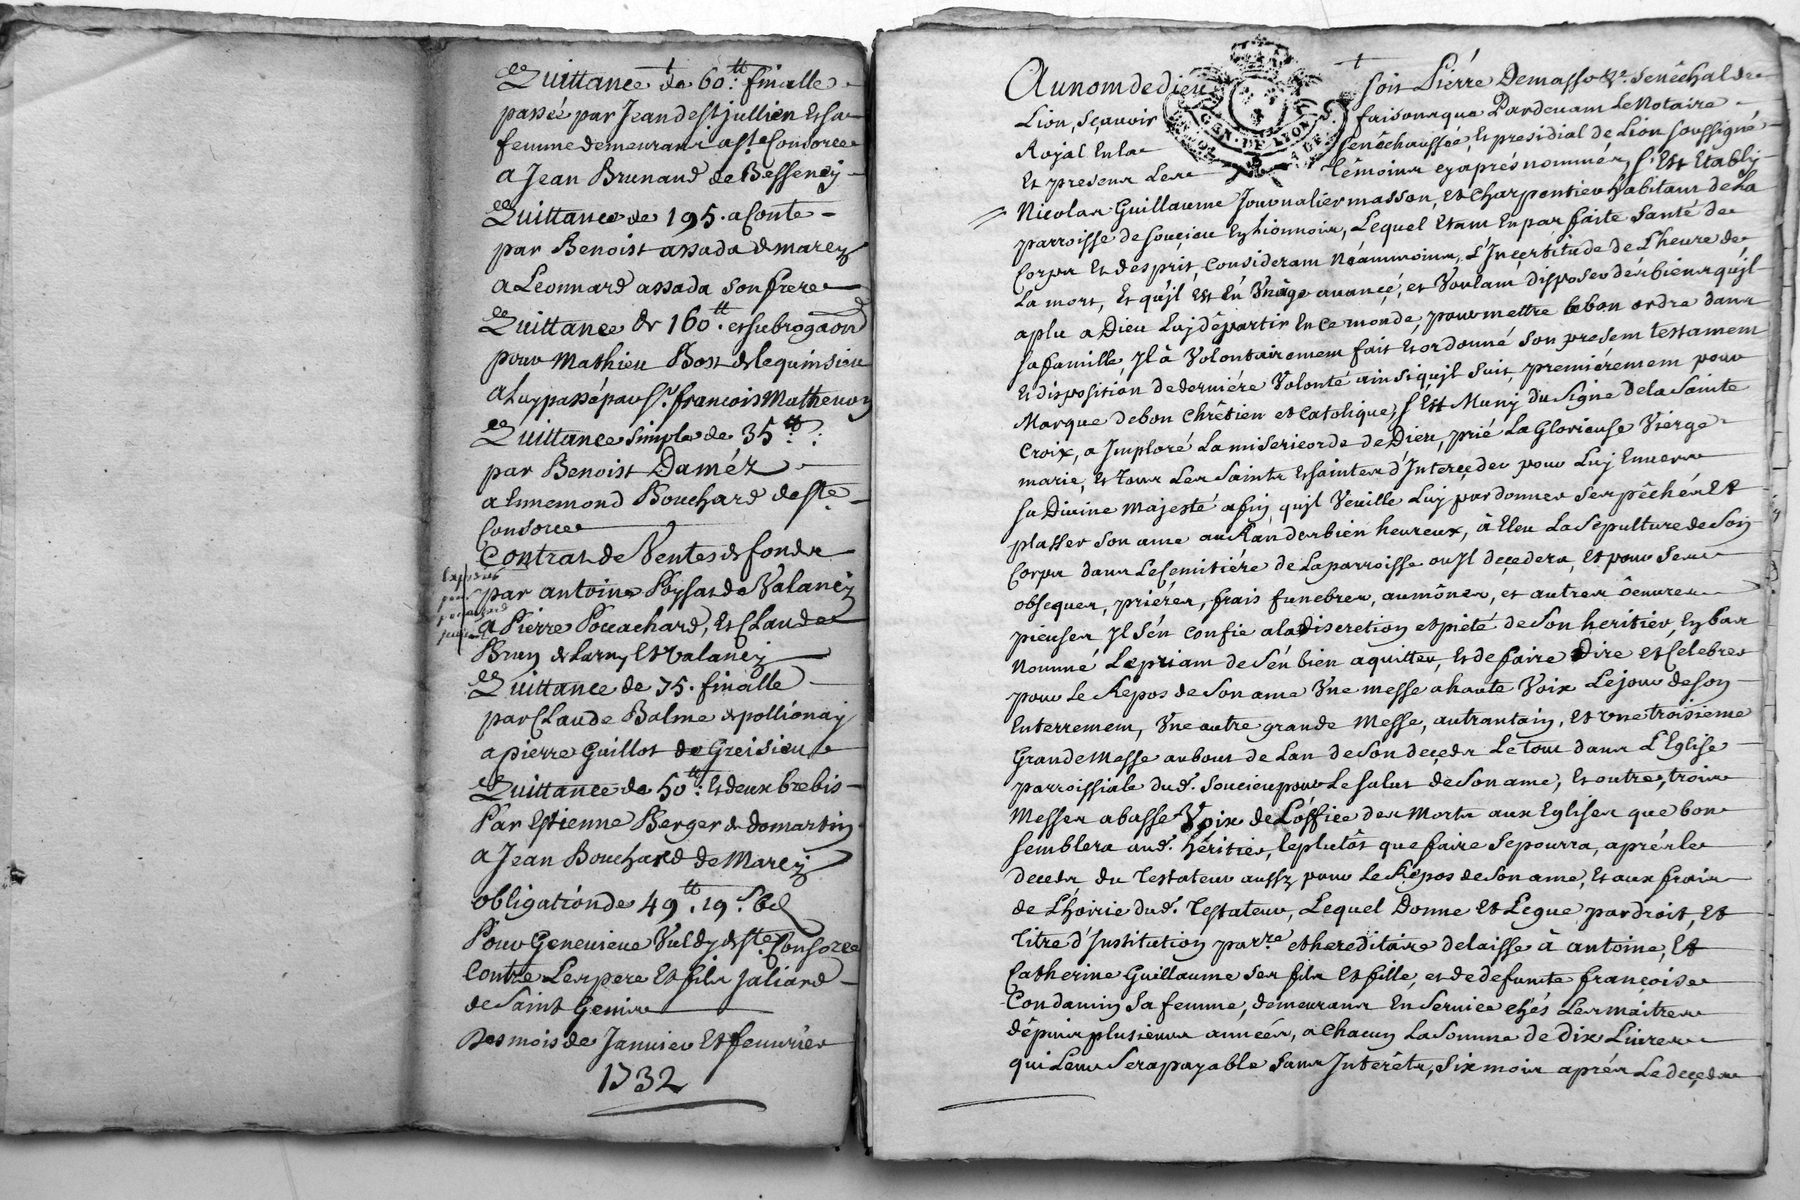 Quittance de 60.tt finalle
passée par Jean de st jullien Et sa
femme demeurant a ste Consorce
a Jean Brunand de Bessenay
Quittance de 195. a Conte
par Benoist assada de marcy
a Leonnard assada son frere
Quittance de 160tt. et subrogaon
pour Mathieu Bost de lequinsieu
a Luy passé par Sr. françois Mathevon
Quittance simple de 35tt.
par Benoist Daméz
a Ennemond Bouchard de ste.
Consorce
Contrat de Ventes de fonds
par antoine Poysat de Valancy
a Pierre Poucachard, Et Claude
Brun de Larny Et Valancy
Quittance de 75. finalle
par Claude Balme de pollionay
a pierre Guillot de Greisieu
Quittance de 50tt. Et deux brebis
Par Estienne Berger de domartin
a Jean Bouchard de Marcy
obligation de 49tt. 19s. 6d
Pour Genevieve Vuldy de ste. Consorce
Contre Les pere Et fils Jaliard
de Saint Genis
Des mois de Janvier Et fevvrier
1732
GEN. DE LYON
Au nom de dieu soit Pierre Demasso &c. senêchal de
Lion, sçavoir faisons que Pardevant Le Notaire
Royal En la senêchaussée, Et presidial de Lion soussigné
Et present Les têmoins cy aprés nommés, s'Est Etably
Nicolas Guillaume Journalier masson, et Charpentier habitant de La
parroisse de souçieu En Lionnois, Lequel Etant En parfaite santé de
Corps Et d'esprit, Considerant Néammoins, L'Incertitude de L'heure de
La mort, Et qu'jl est En Un âge avancé, et Voulant disposer des biens qu'jl
a plu a Dieu Luj départir En ce monde, pour mettre le bon ordre dans
sa famille, jl à Volontairement fait Et ordonné son present testament
Et disposition de derniére Volonté ainsi qu'jl suit, premiérement pour
Marque de bon Chrêtien et Catolique, s'Est Muny du Signe de la Sainte
Croix, a Imploré La misericorde de Dieu, prié La Glorieuse Vierge
marie, Et Tous Les Saints Et saintes d'Interçeder pour Luj Envers
sa Divine Majesté afin qu'jl Veuille Luy pardonner ses pêchés Et
plasser son ame au Ran des bien heureux, à Eleu La Sepulture de Son
Corps dans Le Semitiére de La parroisse ou jl deçedera, Et pour ses
obseques, priéres, frais funebres, aumônes, et autres oeuvres
pieuses jl s'en confie a la discretion et piété de son heritier, En bas
nommé Le priant de s'en bien aquitter, Et de faire dire et Celebrer
pour Le Repos de Son ame Une messe a haute Voix Le jour de son
Enterrement, Une autre grande Messe, au trantain, Et Une troisieme
Grande Messe au bout de L'an de son deçeds Le tout dans L'Eglise
parroissiale dud. Soucieu pour Le salut de Son ame, Et outre, trois
Messes a basse Voix de L'office des Morts aux Eglises que bon
semblera aud. héritier, le plutôt que faire se pourra, aprés le
deceds du Testateur aussy pour Le Repos de Son ame, Et aux frais
de L'hoirie dud. Testateur, Lequel Donne Et Legue par droit, Et
Titre d'Institution parre. et hereditaire delaisse à antoine, Et
Catherine Guillaume ses fils Et fille, et de defunte françoise
Condamin Sa femme, demeurans En Service chés Les maîtres
dépuis plusieurs années, a Chacun La Somme de dix Livres
qui Leur Sera payable sans Interêts, six mois aprés Le deçeds